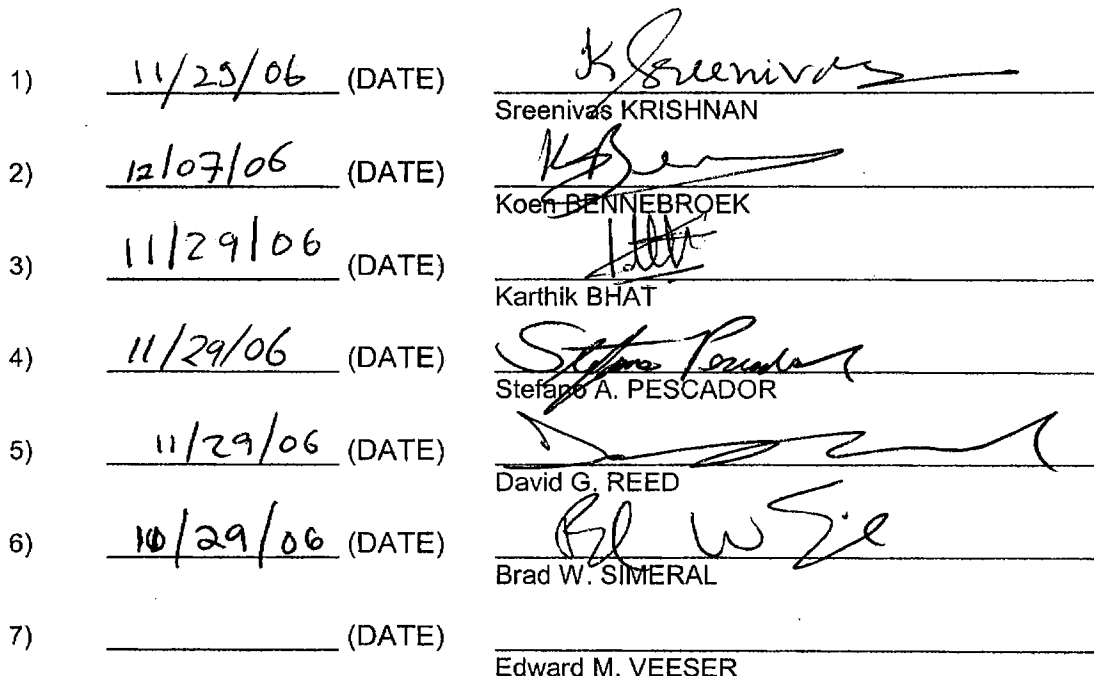 1) 11/29/06 (DATE) K Sreenivas
Sreenivas KRISHNAN
2) 12/07/06 (DATE)
Koen BENNEBROEK
3) 11/29/06 (DATE)
Karthik BHAT
4) 11/29/06 (DATE) Stefano Pescador
Stefano A. PESCADOR
5) 11/29/06 (DATE)
David G. REED
6) /29/06 (DATE)
Brad W. SIMERAL
7) (DATE)
Edward M. VEESER